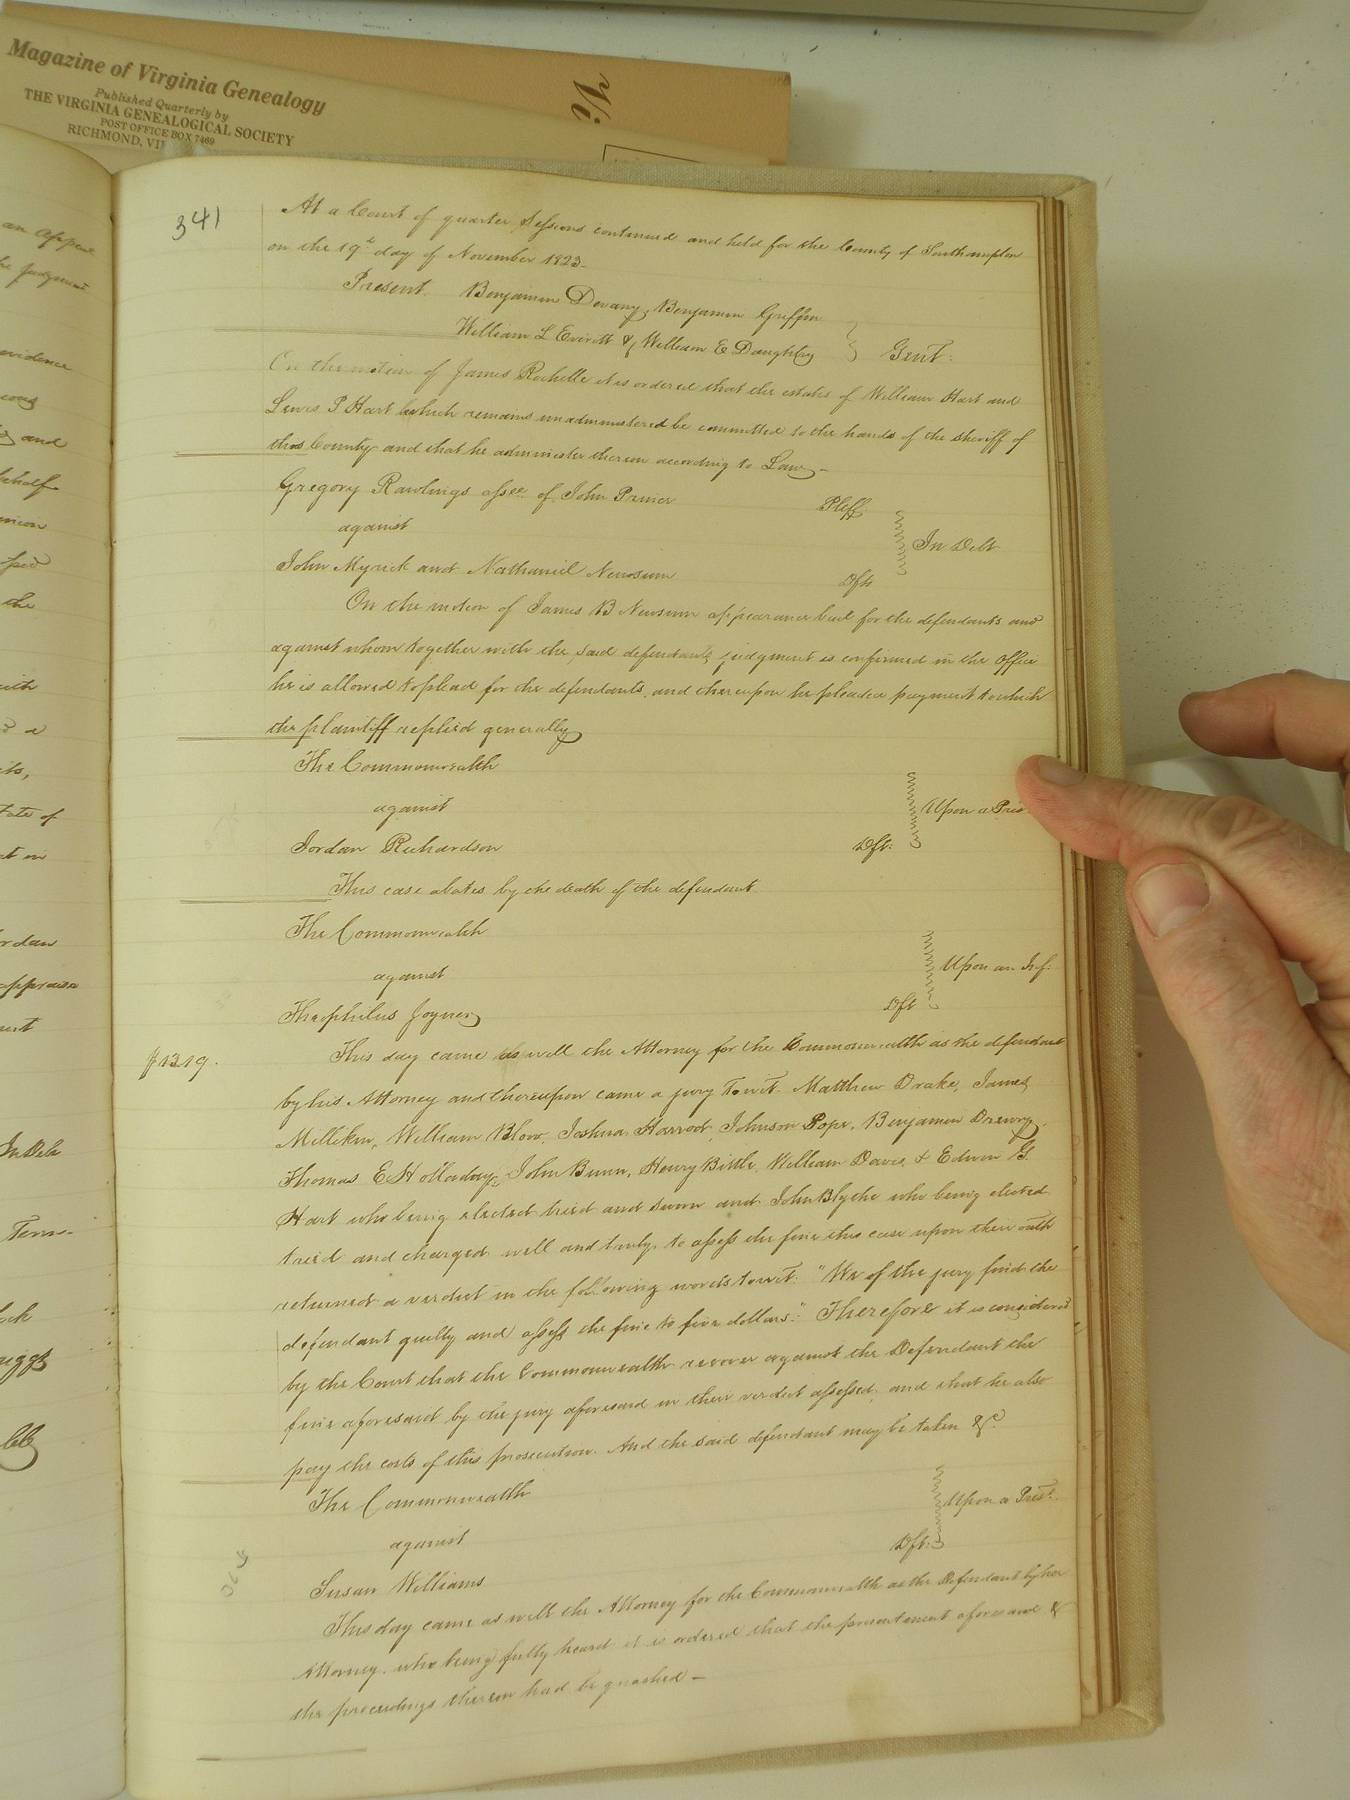 Magazine of Virginia Genealogy
Published Quarterly by
THE VIRGINIA GENEALOGICAL SOCIETY
POST OFFICE BOX 7469
RICHMOND, VI
Vi
an appeal
he judgment
evidence
and
behalf
the
with
a
tate of
rdan
In Debt
Term
341
At a Court of quarter Sessions continued and held for the County of Southampton
on the 19th day of November 1823.
Present. Benjamin Devany, Benjamin Griffin
William L Everett & William E Daughtry
Gent.
On the motion of James Rochelle it is ordered that the estates of William Hart and
Lewis P Hart which remains unadministered be committed to the hands of the sheriff of
this County and that he administer thereon according to Law -
Gregory Rawlings assee of John Pruner Pltff
against
In Debt
John Myrick and Nathaniel Newsum Dfts
On the motion of James B Newsum appearance bail for the defendants and
against whom together with the said defendants judgment is confirmed in the office
he is allowed to plead for the defendants, and thereupon he pleaded payment to which
the plaintiff replied generally
The Commonwealth
against
Upon a Pres
Jordan Richardson Dft.
This case abates by the death of the defendant
The Commonwealth
against
Upon an Inf.
Theophilus Joyner Dft
$13.19.
This day came as well the Attorney for the Commonwealth as the defendant
by his Attorney and thereupon came a jury Towit. Matthew Drake, James
Milliken, William Blow, Joshua Harrod, Johnson Pope, Benjamin Drewry,
Thomas E Holladay, John Bunn, Henry Bittle, William Davis, & Edwin G.
Hart who being elected tried and sworn and John Blythe who being elected
tried and charged well and truly to assess the fine this case upon their oath
returned a verdict in the following words towit: "We of the jury find the
defendant guilty and assess the fine to five dollars." Therefore it is considered
by the Court that the Commonwealth recover against the Defendant the
fine aforesaid by the jury aforesaid in their verdict assessed, and that he also
pay the costs of this prosecution. And the said defendant may be taken &c.
The Commonwealth
against
Upon a Prest.
Susan Williams Dft.
This day came as well the Attorney for the Commonwealth as the Defendant by her
Attorney, who being fully heard it is ordered that the presentment aforesaid &
the proceedings thereon had be quashed -